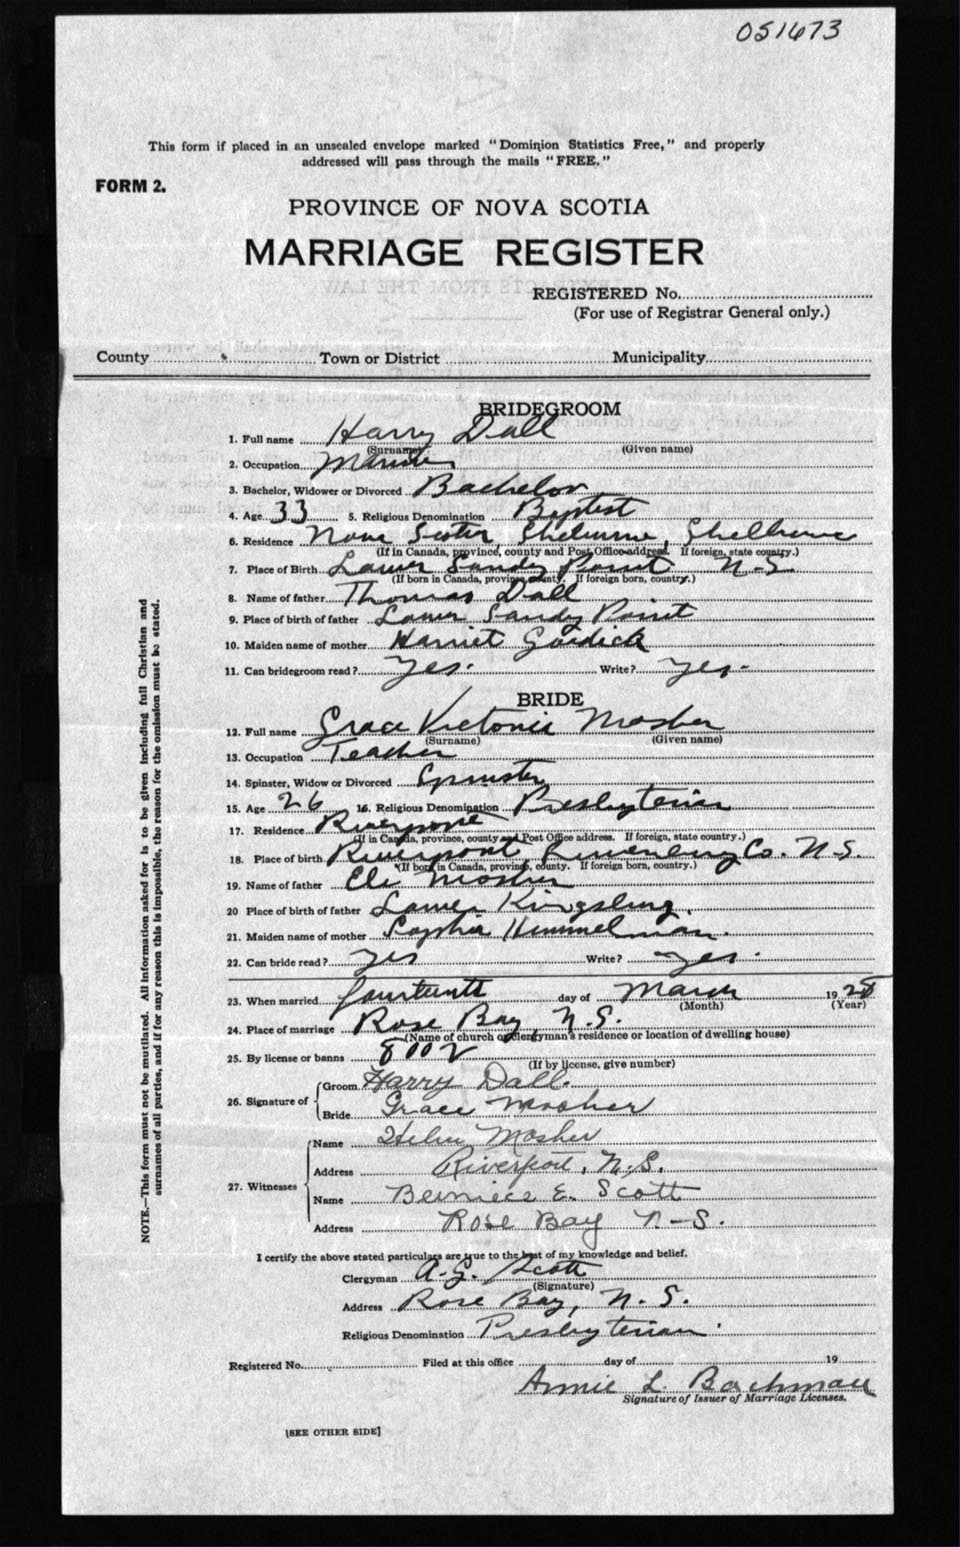 051673
This form if placed in an unsealed envelope marked "Dominion Statistics Free," and properly
addressed will pass through the mails "FREE."
FORM 2.
PROVINCE OF NOVA SCOTIA
MARRIAGE REGISTER
REGISTERED No.
(For use of Registrar General only.)
County Town or District Municipality
BRIDEGROOM
1. Full name Harry Dall
(Surname) (Given name)
2. Occupation Mariner
3. Bachelor, Widower or Divorced Bachelor
4. Age 33 5. Religious Denomination Baptist
6. Residence Nova Scotia, Shelburne, Shelburne
(If in Canada, province, county and Post Office address. If foreign, state country.)
7. Place of Birth Lower Sandy Point N-S
(If born in Canada, province, county. If foreign born, country.)
8. Name of father Thomas Dall
9. Place of birth of father Lower Sandy Point
10. Maiden name of mother Harriet
11. Can bridegroom read? Yes. Write? Yes-
BRIDE
12. Full name Grace Victoria Mosher
(Surname) (Given name)
13. Occupation Teacher
14. Spinster, Widow or Divorced Spinster
15. Age 26 16. Religious Denomination Presbyterian
17. Residence Riverport
(If in Canada, province, county and Post Office address. If foreign, state country.)
18. Place of birth Riverport, Lunenburg Co. N-S.
(If born in Canada, province, county. If foreign born, country.)
19. Name of father Eli Mosher
20 Place of birth of father Lower Kingsburg.
21. Maiden name of mother Sophia Himmelman.
22. Can bride read? Yes Write? Yes.
23. When married fourteenth day of March 1928
(Month) (Year)
24. Place of marriage Rose Bay, N.S.
(Name of church or clergyman's residence or location of dwelling house)
25. By license or banns 8002
(If by license, give number)
26. Signature of
Groom Harry Dall.
Bride Grace Mosher
27. Witnesses
Name Helen Mosher
Address Riverport, N.S.
Name Berniece E. Scott
Address Rose Bay N-S.
I certify the above stated particulars are true to the best of my knowledge and belief.
Clergyman A.G. Scott
(Signature)
Address Rose Bay, N.S.
Religious Denomination Presbyterian.
Registered No. Filed at this office day of 19
Annie L Bachman
Signature of Issuer of Marriage Licenses.
[SEE OTHER SIDE]
NOTE.—This form must not be mutilated. All information asked for is to be given including full Christian and
surnames of all parties, and if for any reason this is impossible, the reason for the omission must be stated.